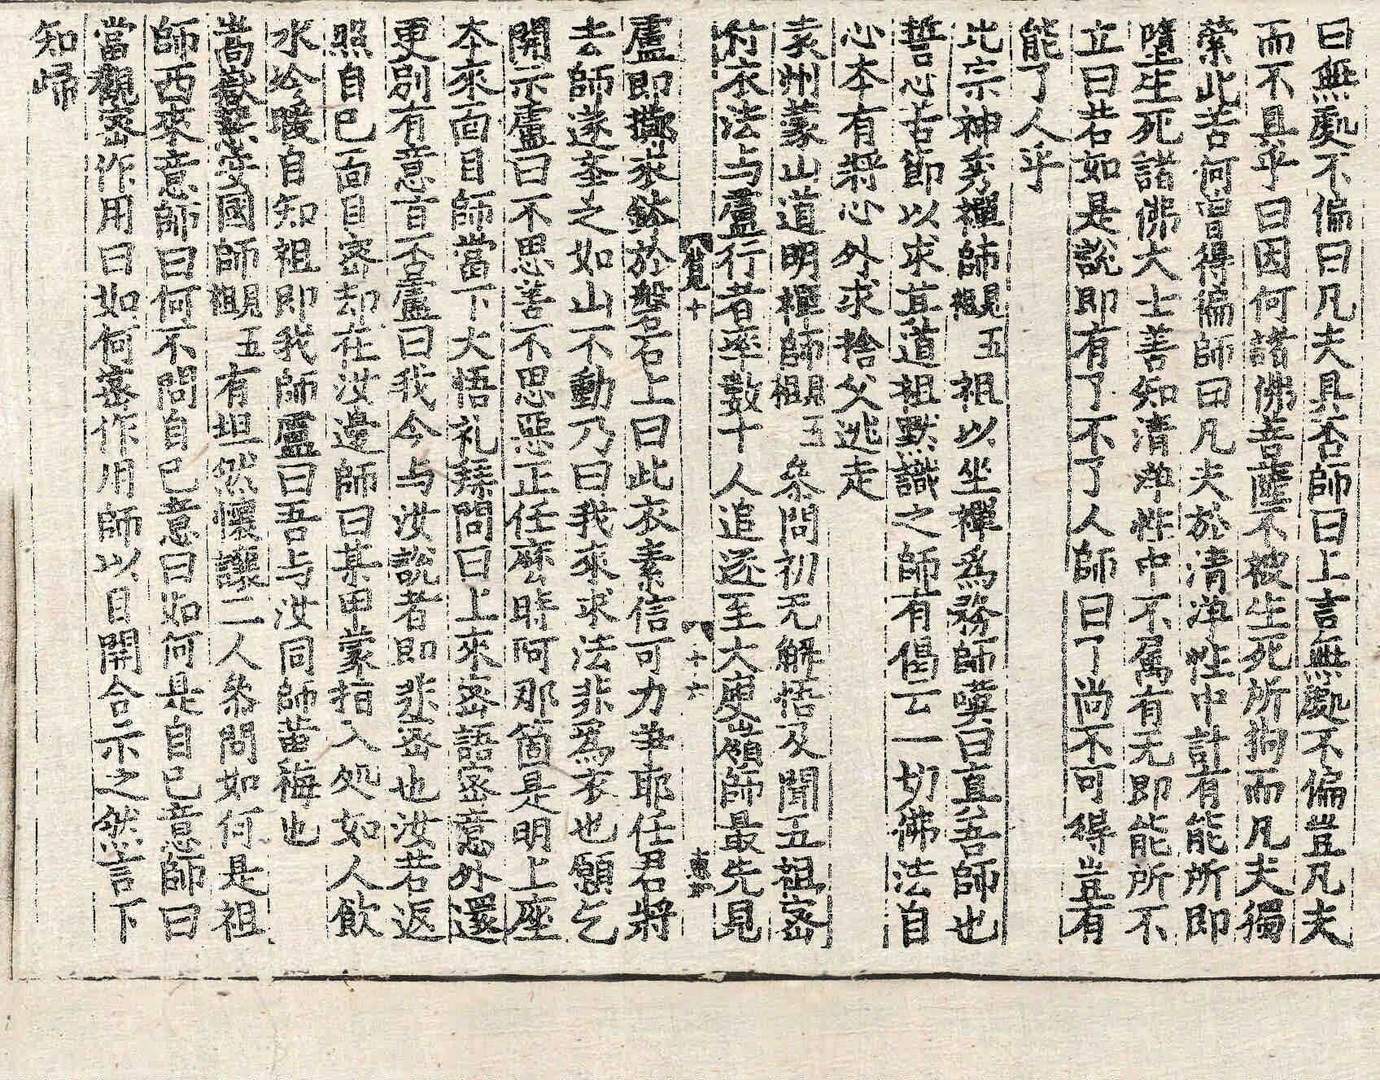 曰無處不偏曰凡夫具否師曰上言無處不偏豈凡夫
而不具乎曰因何諸佛菩薩不被生死所拘而凡夫獨
縈此苦何曾得徧師曰凡夫於清淨性中計有能所即
墮生死諸佛大士善知清淨性中不属有无即能所不
立曰若如是說即有了不了人師曰了尚不可得豈有
能了人乎
北宗神秀禪師見五祖 祖以坐禪爲務師嘆曰眞吾師也
誓心苦節以求其道祖默識之師有偈云一切佛法自
心本有將心外求捨父逃走
袁州蒙山道明禪師見五祖 叅問初无解悟及聞五祖密
付衣法与盧行者率數十人追逐至大庾嶺師最先見
盧即擲衣鉢於盤石上曰此衣表信可力爭耶任君將
去師遂夲之如山不動乃曰我來求法非爲衣也願乞
開示盧曰不思善不思惡正任麽時阿那箇是明上座
本來面目師當下大悟礼拜問曰上來密語密意外還
更別有意旨不盧曰我今与汝說者即非密也汝若返
照自己面目密却在汝邊師曰某甲蒙指入処如人飮
水冷暖自知祖即我師盧曰吾与汝同師黃梅也
嵩嶽慧安國師見五祖 有坦然懷讓二人叅問如何是祖
師西來意師曰何不問自己意曰如何是自己意師曰
當觀密作用曰如何密作用師以目開合示之然言下
知歸